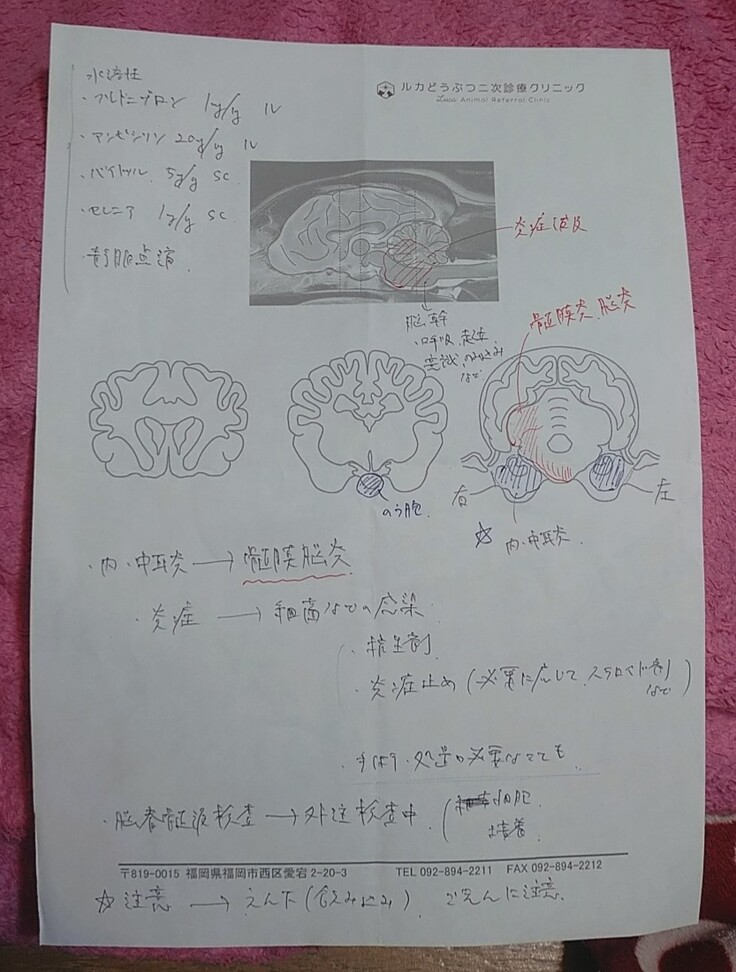 水溶性
・プレドニゾロン 1mg/kg IV
・アンピシリン 20mg/kg IV
・バイトリル 5mg/kg SC
・セレニア 1mg/kg SC
・静脈点滴
ルカどうぶつ二次診療クリニック
Luca Animal Referral Clinic
炎症波及
脳幹
・呼吸、起立、
意識、のみこみ
など
髄膜炎、脳炎
のう胞
右
左
☆ 内・中耳炎
・内・中耳炎 → 髄膜脳炎
・炎症 → 細菌などの感染
・抗生剤
・炎症止め (必要に応じて、ステロイド剤
など)
・脳脊髄液検査 → 外注検査中
細胞
培養
〒819-0015 福岡県福岡市西区愛宕 2-20-3 TEL 092-894-2211 FAX 092-894-2212
☆ 注意 → えん下 (飲み込み)、ごえんに注意